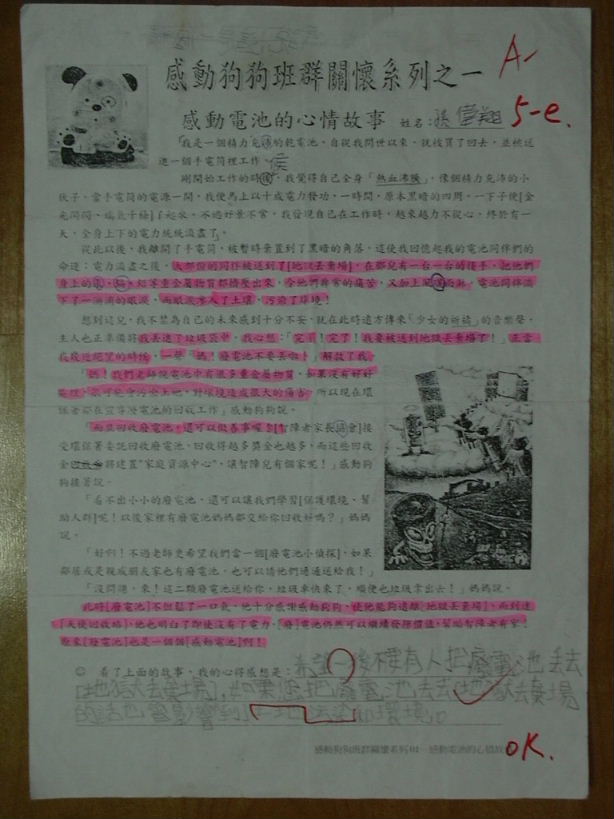 感動狗狗班群關懷系列之一
A-
感動電池的心情故事 姓名:張偉翔 5-e.
「我是一個精力充沛的乾電池,自從我問世以來,就被買了回去,並被送
進一個手電筒裡工作。
候
剛開始工作的時後,我覺得自己全身「熱血沸騰」,像個精力充沛的小
伙子,當手電筒的電源一開,我便馬上以十成電力發功,一時間,原本黑暗的四周,一下子便[金
光閃閃、瑞氣千條]了起來。不過好景不常,我發現自己在工作時,越來越力不從心,終於有一
天,全身上下的電力統統流盡了。
從此以後,我離開了手電筒,被暫時棄置到了黑暗的角落,這使我回憶起我的電池同伴們的
命運:電力流盡之後,大部份的同伴被送到了[地獄丟棄場],在那兒有一台一台的怪手,把他們
身上的
下了一滴滴的眼淚,而眼淚滲入了土壤,污染了環境!
想到這兒,我不禁為自己的未來感到十分不安,就在此時遠方傳來「少女的祈禱」的音樂聲,
主人也正準備將我丟進了垃圾袋中,我心想:「完了!完了!我要被送到地獄丟棄場了!」正當
我幾近絕望的時候,一聲「媽!廢電池不要丟啦!」解救了我。
「媽!我們老師說電池中有很多重金屬物質,如果沒有好好
所以現在環
保署都在宣導廢電池的回收工作」感動狗狗說。
「而且回收廢電池,還可以做善事喔![智障者家長協會]接
受環保署委託回收廢電池,回收得越多獎金也越多,而這些回收
金 將建置"家庭資源中心",讓智障兒有個家呢!」感動狗
狗接著說。
「看不出小小的廢電池,還可以讓我們學習[保護環境、幫
助人群]呢!以後家裡有廢電池媽媽都交給你回收好嗎?」媽媽
說。
「好啊!不過老師更希望我們當一個[廢電池小偵探],如果
鄰居或是親戚朋友家也有廢電池,也可以請他們通通送給我!」
「沒問題,來!這二顆廢電池送給你,垃圾車快來了,順便也垃圾拿出去!」媽媽說。
此時[廢電池]不但鬆了一口氣,他十分感謝感動狗狗,使他能夠遠離[地獄丟棄場],而到達
[天使回收站],他也明白了即使沒有了電力,[廢]電池仍然可以繼續發揮價值,幫助智障者有家!
原來[廢電池]也是一個個[感動電池]啊!
☺ 看了上面的故事,我的心得感想是:希望一後不要有人把廢電池丟去
[地獄丟棄場],如果您把廢電池丟去地獄丟棄場
的話也會影響到 環境。
感動狗狗班群關懷系列01--感動電池的心情故
OK.